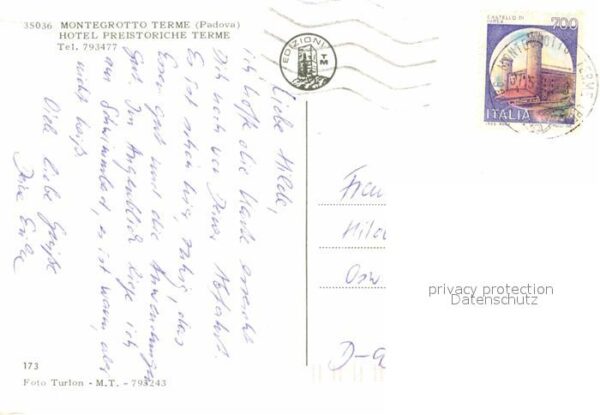 35036 MONTEGROTTO TERME (Padova)
HOTEL PREISTORICHE TERME
Tel. 793477
EDIZIONI
T
M
CASTELLO DI
700
ITALIA
Liebe Hilde,
ich hoffe die Karte erreicht
Dich noch vor Deiner Abfahrt.
Es ist schön hier, ruhig, das
Essen gut und die Anwendungen
gut. Im Augenblick liege ich
am Schwimmbad, es ist warm, aber
nicht heiß
Viele liebe Grüße
Deine
Frau
Osw
D-
privacy protection
Datenschutz
173
Foto Turlon - M.T. - 793243